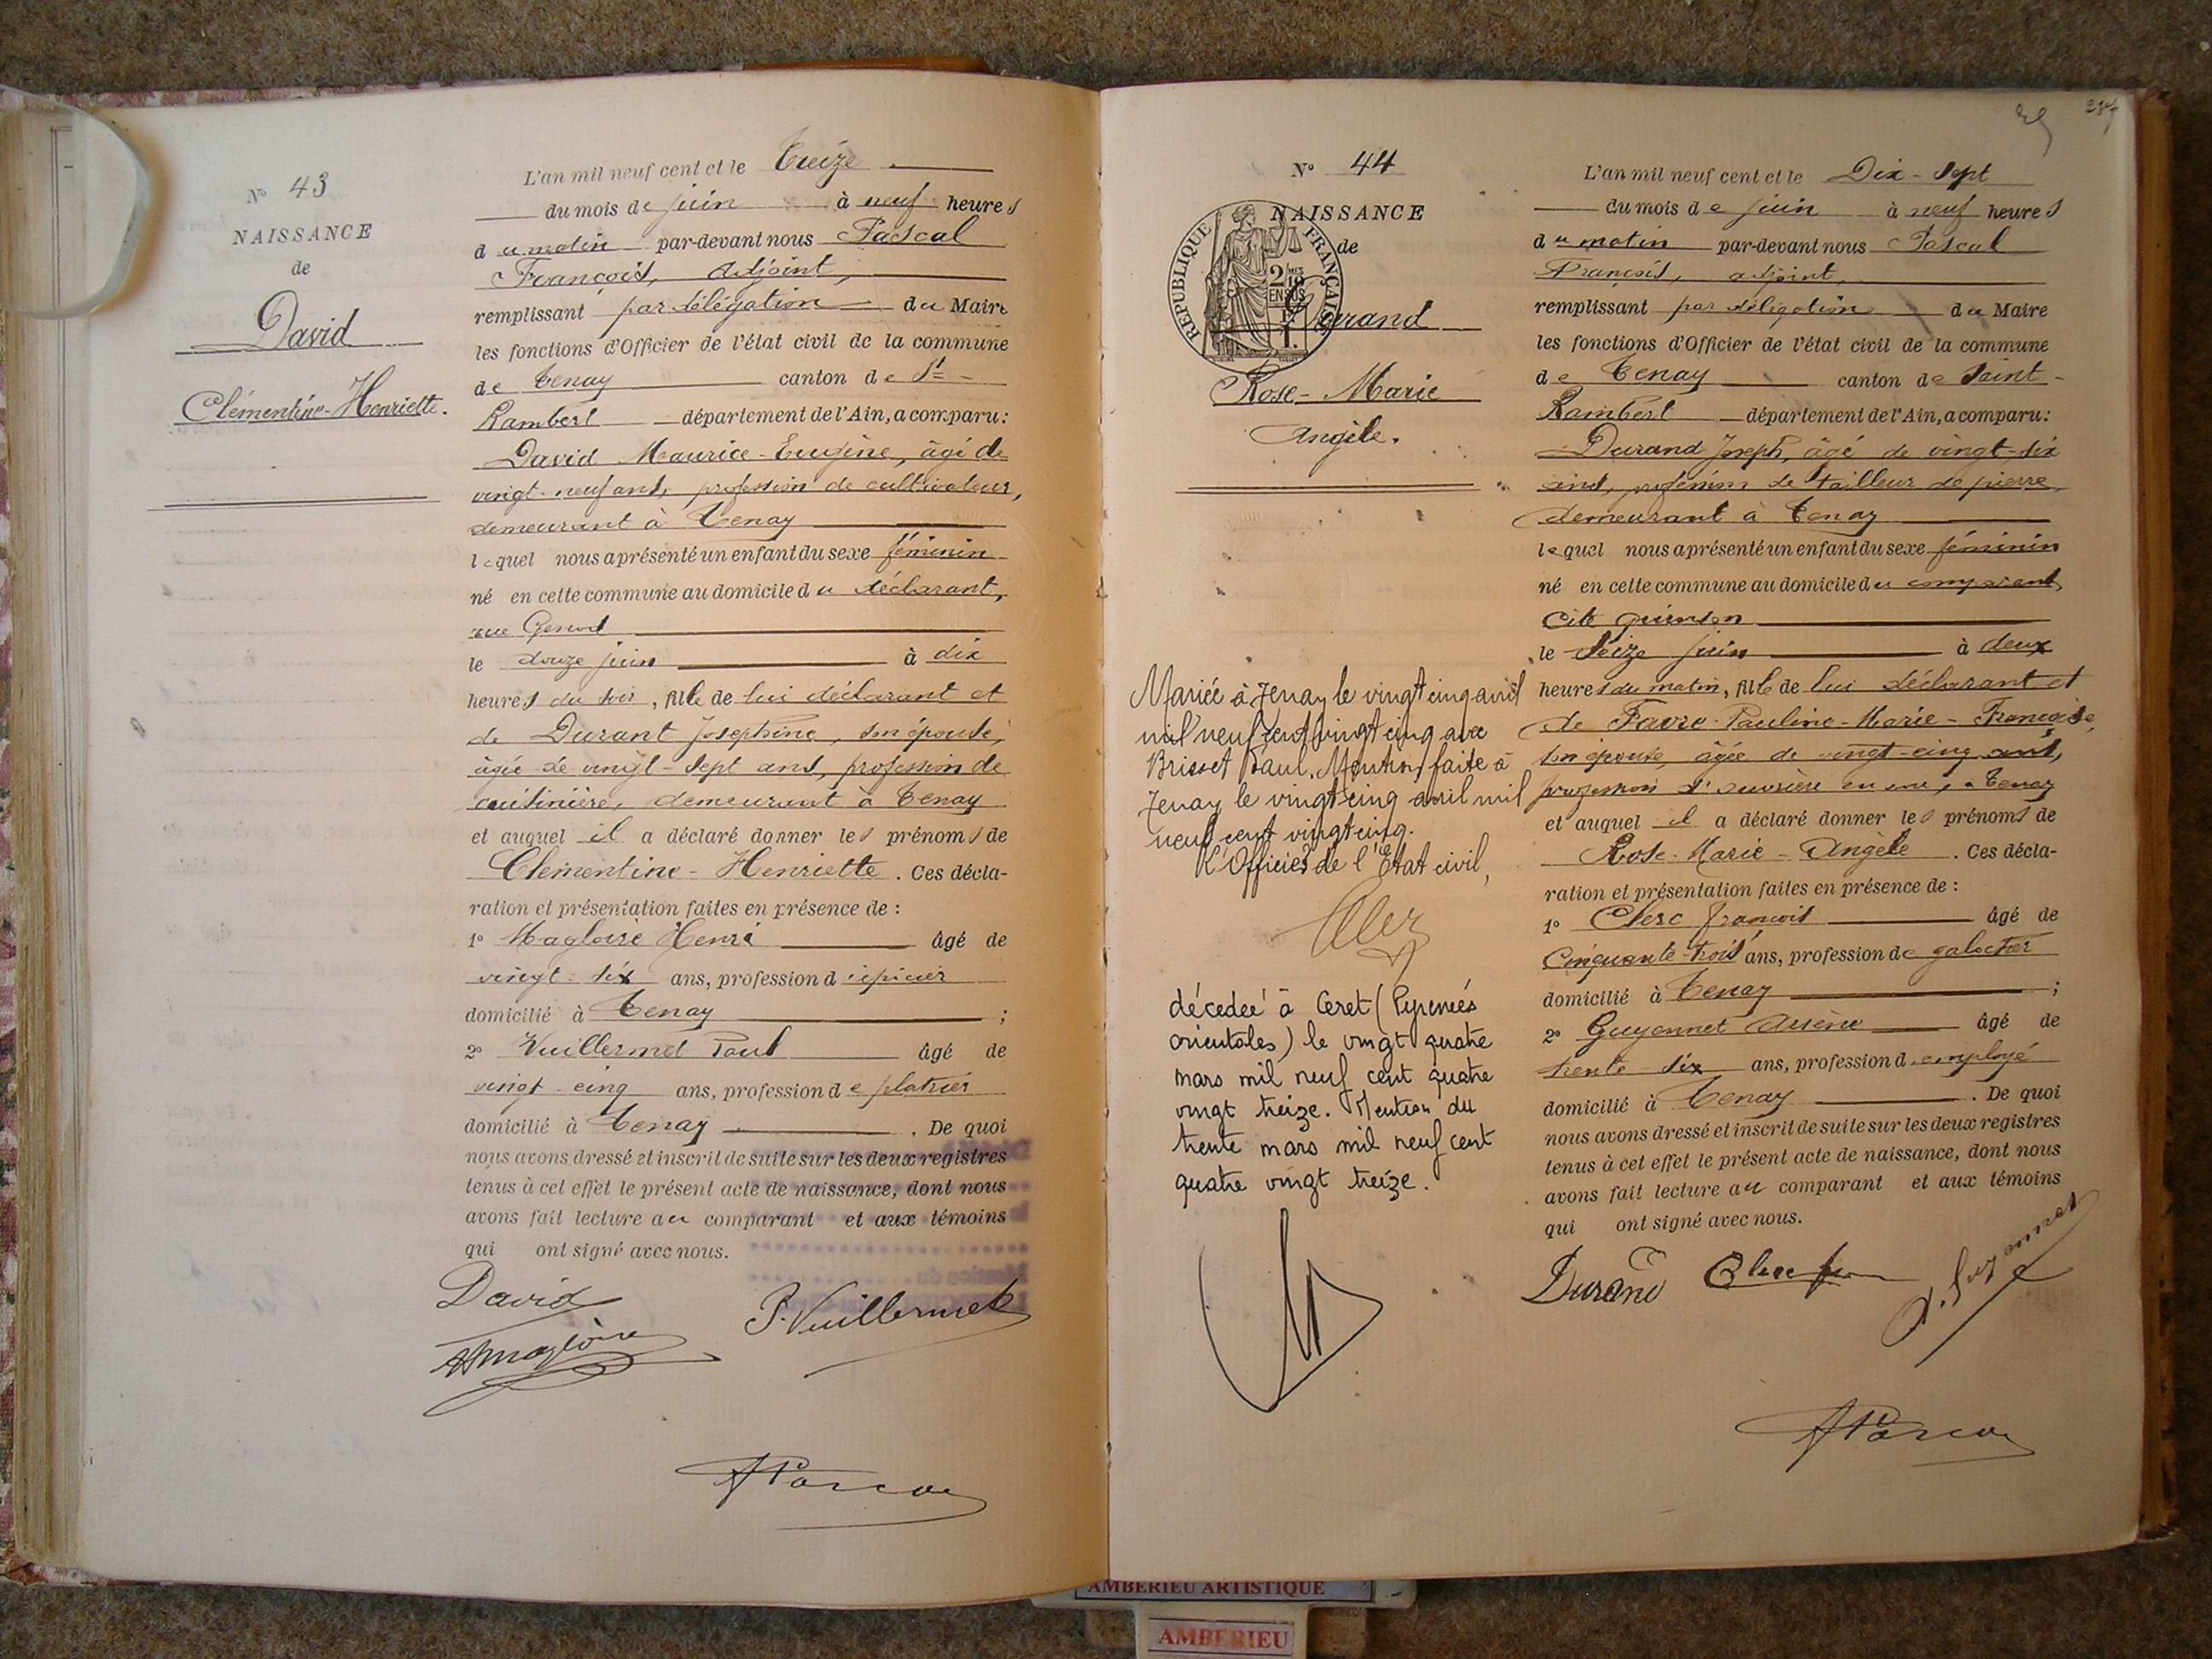 N° 43
NAISSANCE
de
David
Clémentine-Henriette.
L'an mil neuf cent et le Treize
du mois de juin à neuf heures
du matin par-devant nous Pascal
François, adjoint,
remplissant par délégation du Maire
les fonctions d'Officier de l'état civil de la commune
de Tenay canton de St-
Rambert département de l'Ain, a comparu :
David Maurice-Eugène, âgé de
vingt-neuf ans, profession de cultivateur,
demeurant à Tenay
lequel nous a présenté un enfant du sexe féminin
né en cette commune au domicile du déclarant,
rue Genod
le douze juin à dix
heures du soir, fille de lui déclarant et
de Durant Josephine, son épouse,
âgée de vingt-sept ans, profession de
cuisinière, demeurant à Tenay
et auquel il a déclaré donner les prénoms de
Clémentine-Henriette. Ces décla-
ration et présentation faites en présence de :
1° Magloire Henri âgé de
vingt-six ans, profession d'épicier
domicilié à Tenay ;
2° Vuillermet Paul âgé de
vingt-cinq ans, profession de platrier
domicilié à Tenay. De quoi
nous avons dressé et inscrit de suite sur les deux registres
tenus à cet effet le présent acte de naissance, dont nous
avons fait lecture au comparant et aux témoins
qui ont signé avec nous.
David
P. Vuillermet
H magloire
N° 44
NAISSANCE
de
RÉPUBLIQUE FRANÇAISE
Durand
Rose-Marie
Angèle.
Mariée à Tenay le vingt cinq avril
mil neuf cent vingt cinq avec
Brisset Paul. Mention faite à
Tenay le vingt cinq avril mil
neuf cent vingt cinq.
L'Officier de l'État civil,
décedeé à Ceret (Pyreneés
orientales) le vingt quatre
mars mil neuf cent quatre
vingt treize. Mention du
trente mars mil neuf cent
quatre vingt treize.
L'an mil neuf cent et le Dix-sept
du mois de juin à neuf heures
du matin par-devant nous Pascal
François, adjoint,
remplissant par délégation du Maire
les fonctions d'Officier de l'état civil de la commune
de Tenay canton de Saint-
Rambert département de l'Ain, a comparu :
Durand Joseph, âgé de vingt-six
ans, profession de tailleur de pierre,
demeurant à Tenay
lequel nous a présenté un enfant du sexe féminin
né en cette commune au domicile du comparant,
cité quinson
le seize juin à deux
heures du matin, fille de lui déclarant et
de Favre Pauline-Marie-Françoise,
son épouse, âgée de vingt-cinq ans,
profession d'ouvrière en soie, à Tenay
et auquel il a déclaré donner les prénoms de
Rose-Marie-Angèle. Ces décla-
ration et présentation faites en présence de :
1° Clerc françois âgé de
cinquante-trois ans, profession de
domicilié à Tenay ;
2° Guyennet Arsène âgé de
trente-six ans, profession d'employé
domicilié à Tenay. De quoi
nous avons dressé et inscrit de suite sur les deux registres
tenus à cet effet le présent acte de naissance, dont nous
avons fait lecture au comparant et aux témoins
qui ont signé avec nous.
Durand
AMBERIEU ARTISTIQUE
AMBERIEU